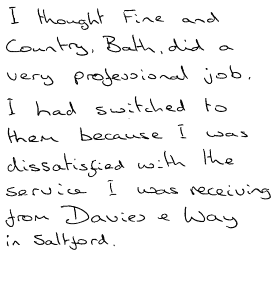 I thought Fine and
Country, Bath, did a
very professional job.
I had switched to
them because I was
dissatisfied with the
service I was receiving
from Davies & Way
in Saltford.